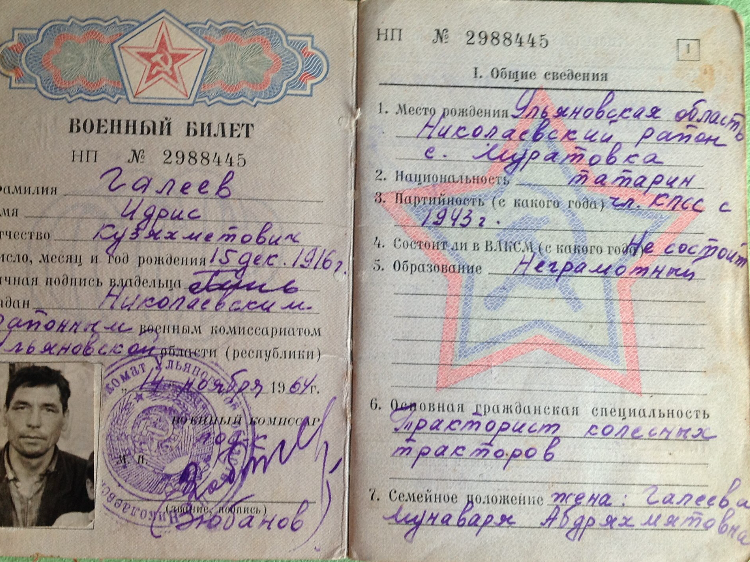 ВОЕННЫЙ БИЛЕТ
НП № 2988445
фамилия Галеев
имя Идрис
отчество Кузяхметович
число, месяц и год рождения 15 дек. 1916 г.
личная подпись владельца
выдан Николаевским
районным военным комиссариатом
Ульяновской области (республики)
14 ноября 1964 г.
военный комиссар
под-к
М. П.
(звание, подпись)
(Зюбанов)
НП № 2988445
1
I. Общие сведения
1. Место рождения Ульяновская область
Николаевский район
с. Муратовка
2. Национальность татарин
3. Партийность (с какого года) чл. КПСС с
1943 г.
4. Состоит ли в ВЛКСМ (с какого года) Не состоит
5. Образование Неграмотный
6. Основная гражданская специальность
Тракторист колесных
тракторов
7. Семейное положение жена: Галеева
Мунаваря Абдряхмятовна